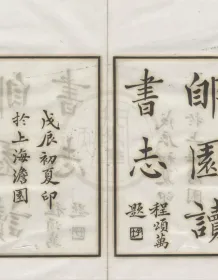 郋園讀
書志
程頌萬
題
戊辰初夏印
於上海澹園